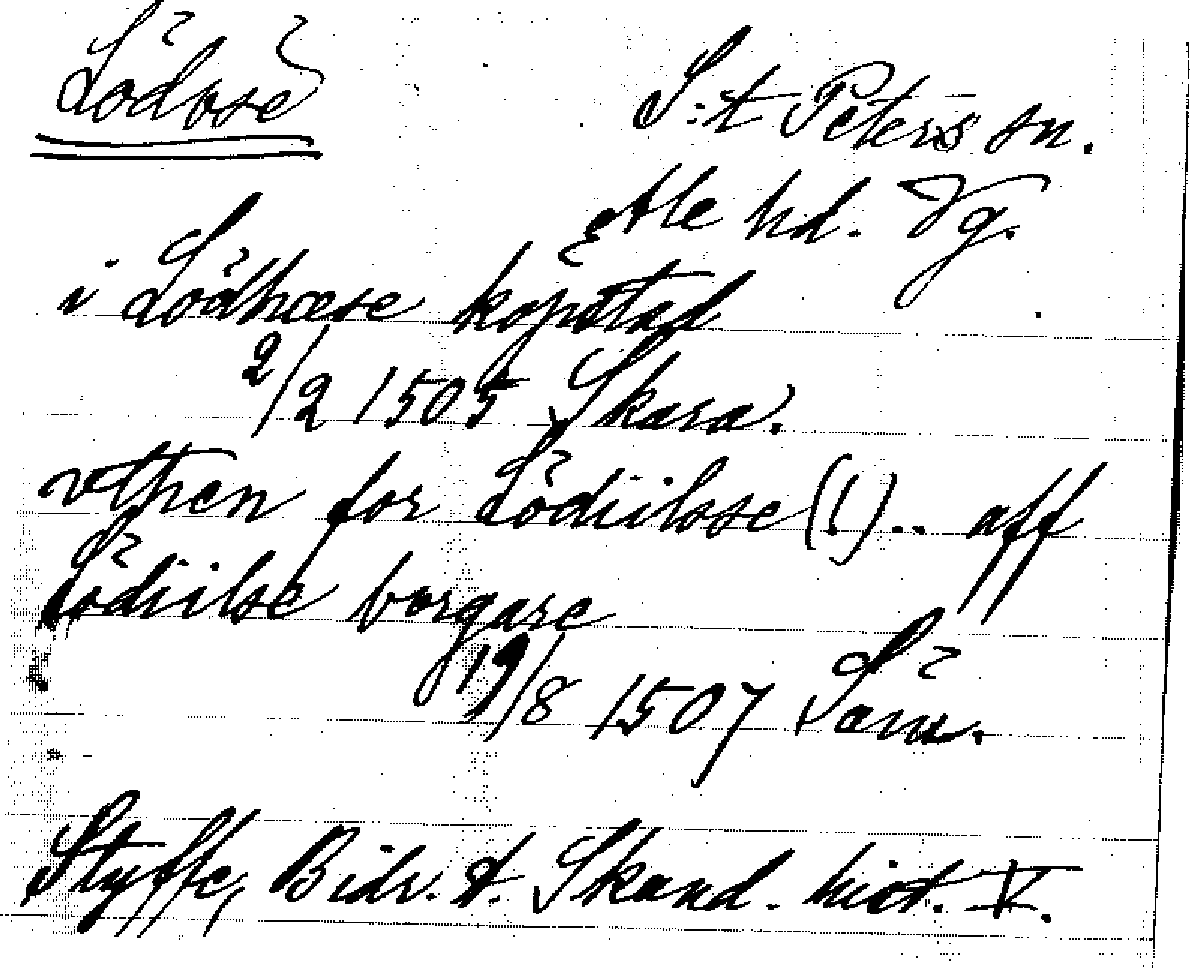 Lödöse
S:t Peters sn.
Ale hd. Vg.
i Lödhæse köpstad
2/2 1505 Skara.
vthen for Lödiilose (!).. aff
Lödiilse borgare
19/8 1507
Styffe, Bidr. t. Skand. hist. V.